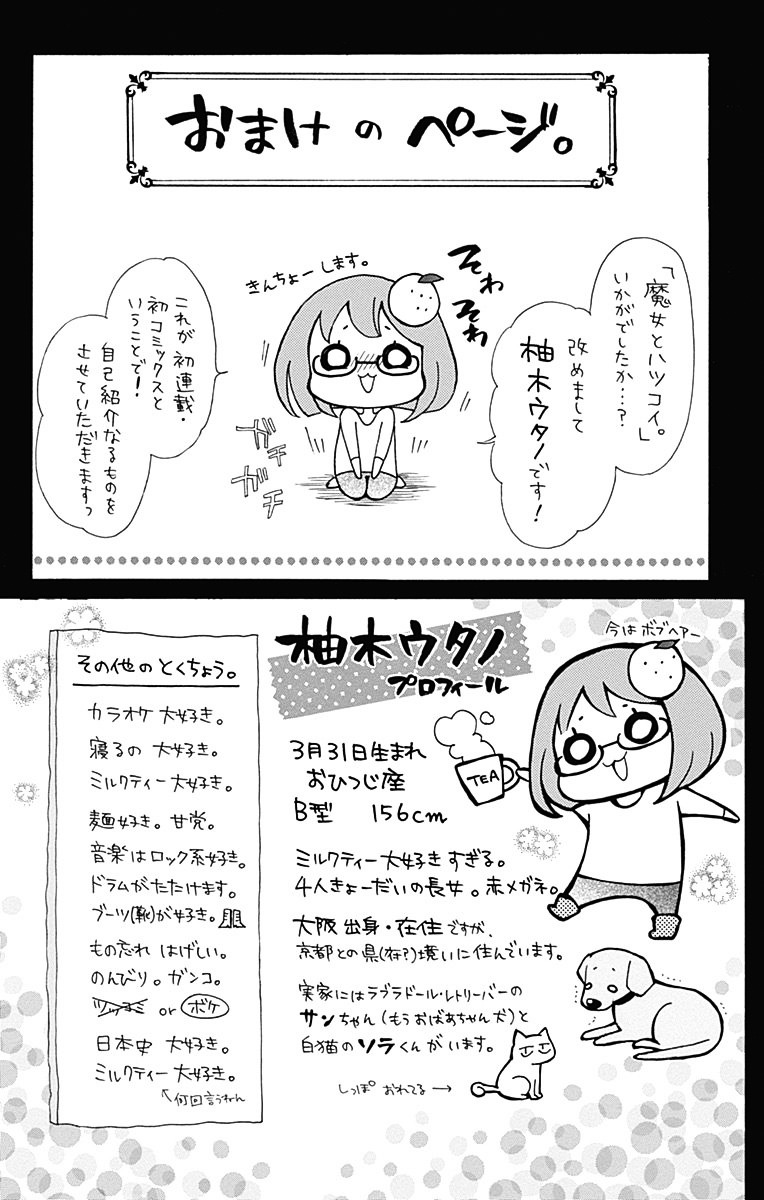 おまけのページ。
「魔女とハツコイ。」
いかがでしたか…?
改めまして
柚木ウタノです!
そわ
そわ
きんちょーします。
ガチ
ガチ
これが初連載・
初コミックスと
いうことで!
自己紹介なるものを
させていただきますっ
柚木ウタノ
プロフィール
今はボブヘアー
TEA
3月31日生まれ
おひつじ座
B型 156cm
ミルクティー大好きすぎる。
4人きょーだいの長女。赤メガネ。
大阪出身・在住ですが、
京都との県(府?)境いに住んでいます。
実家にはラブラドール・レトリーバーの
サンちゃん(もうおばあちゃん犬)と
白猫のソラくんがいます。
しっぽ おれてる→
その他のとくちょう。
カラオケ 大好き。
寝るの 大好き。
ミルクティー 大好き。
麺好き。甘党。
音楽はロック系好き。
ドラムがたたけます。
ブーツ(靴)が好き。
もの忘れ はげしい。
のんびり。ガンコ。
ツッコミ or ボケ
日本史 大好き。
ミルクティー 大好き。
↑何回言うねん